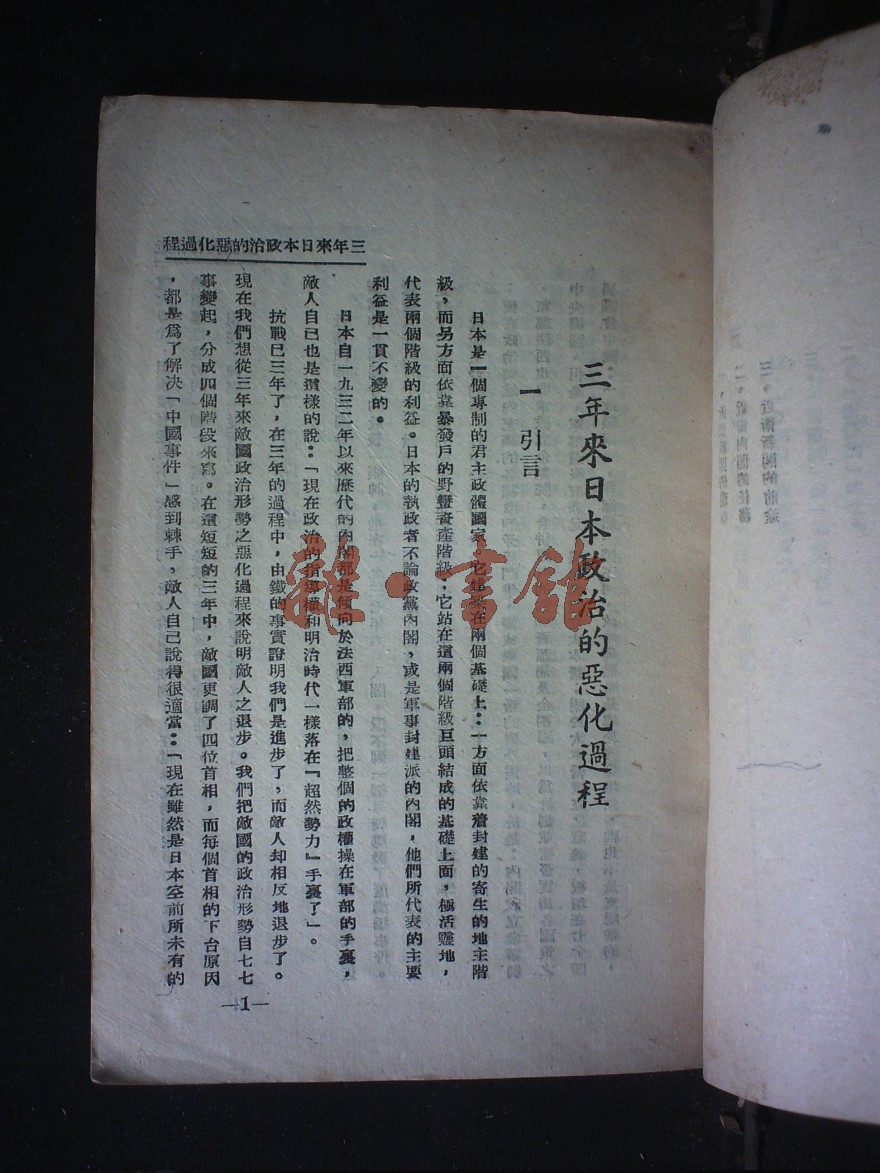 三年來日本政治的惡化過程
一 引言
日本是一個專制的君主政體國家,它建築在兩個基礎上:一方面依靠着封建的寄生的地主階
級,而另方面依靠暴發戶的野蠻資產階級;它站在這兩個階級巨頭結成的基礎上面,極活靈地,
代表兩個階級的利益。日本的執政者不論政黨內閣,或是軍事封建派的內閣,他們所代表的主要
利益是一貫不變的。
日本自一九三二年以來歷代的內閣都是傾向於法西軍部的,把整個的政權操在軍部的手裏,
敵人自己也是這樣的說:「現在政治的指導權和明治時代一樣落在『超然勢力』手裏了」。
抗戰已三年了,在三年的過程中,由鐵的事實證明我們是進步了,而敵人却相反地退步了。
現在我們想從三年來敵國政治形勢之惡化過程來說明敵人之退步。我們把敵國的政治形勢自七七
事變起,分成四個階段來寫。在這短短的三年中,敵國更調了四位首相,而每個首相的下台原因
,都是爲了解決「中國事件」感到棘手,敵人自己說得很適當:「現在雖然是日本空前所未有的
三年來日本政治的惡化過程
—1—
三、近衛新閣的前途
二、敵新內閣的任務
雜·書館